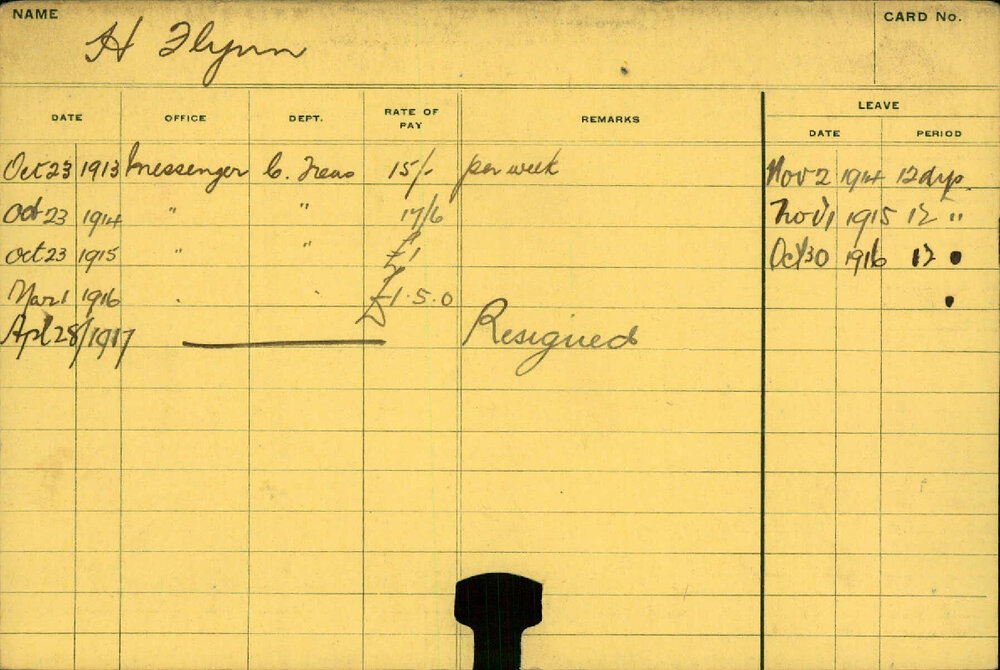 NAME
H Flynn
CARD No.
DATE OFFICE DEPT. RATE OF PAY REMARKS LEAVE
DATE PERIOD
Oct 23 1913 Messenger C. Treas 15/- per week Nov 2 1914 12 dys
Oct 23 1914 " " 17/6 Nov 1 1915 12 "
Oct 23 1915 " " £1 Oct 30 1916 12 "
Mar 1 1916 " " £1.5.0
Apl 28/1917 Resigned